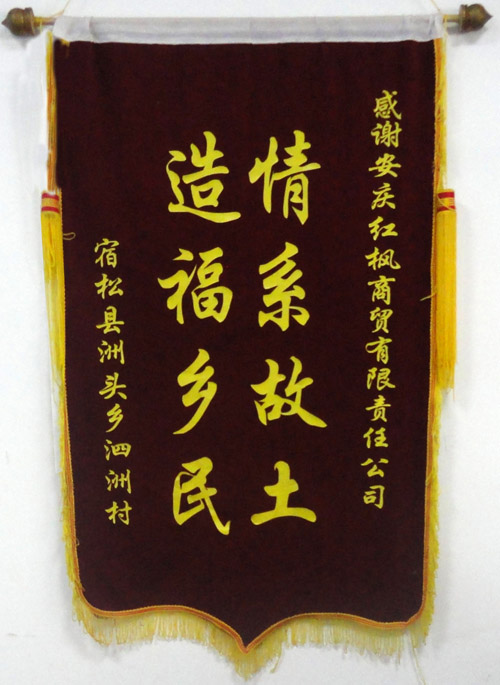 感谢安庆红枫商贸有限责任公司
情系故土
造福乡民
宿松县洲头乡泗洲村